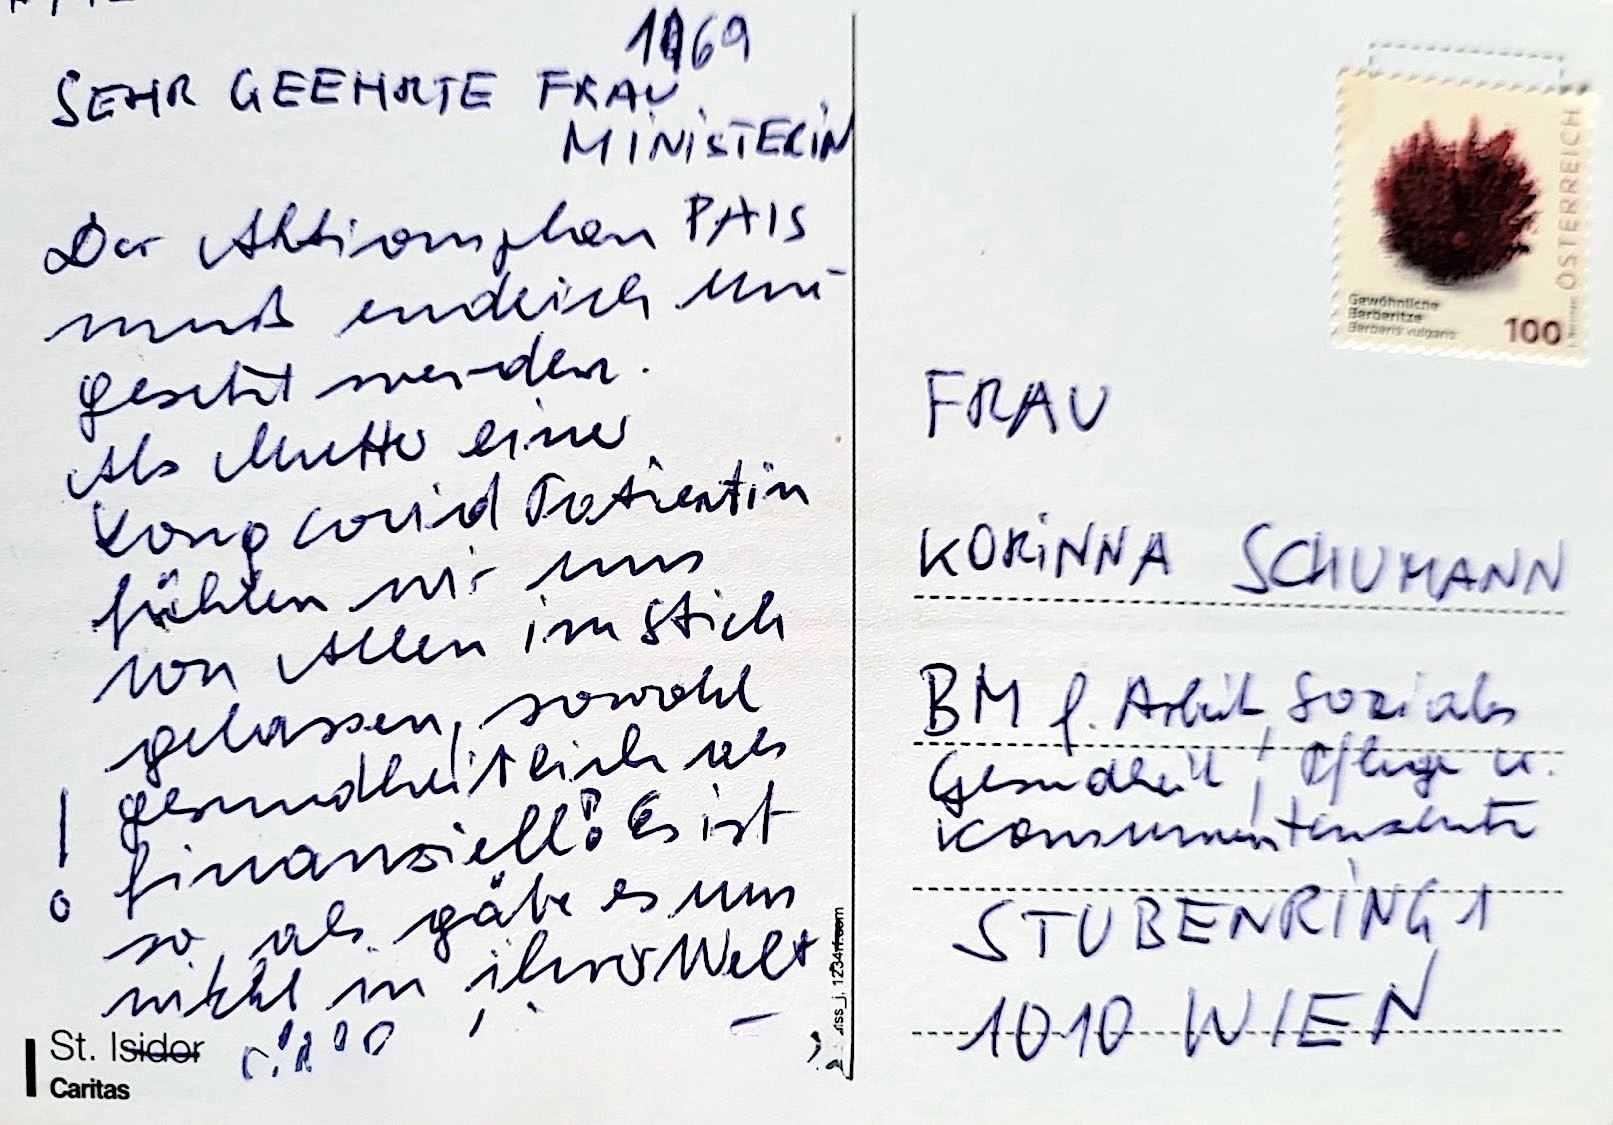 1169
SEHR GEEHRTE FRAU
MINISTERIN
Der Aktionsplan PAIS
muß endlich um-
gesetzt werden.
Als Mutter einer
Long covid Patientin
fühlen wir uns
von Allen im Stich
gelassen, sowohl
gesundheitlich als
finanziell! Es ist
so, als gäbe es uns
nicht in ihrer Welt
!
St. Isidor
Caritas
ss_j, 123rf.com
ÖSTERREICH
Gewöhnliche
Berberitze
Berberis vulgaris
100
FRAU
KORINNA SCHUMANN
BM f. Arbeit Soziales
Gesundheit, Pflege u.
Konsumentenschutz
STUBENRING 1
1010 WIEN